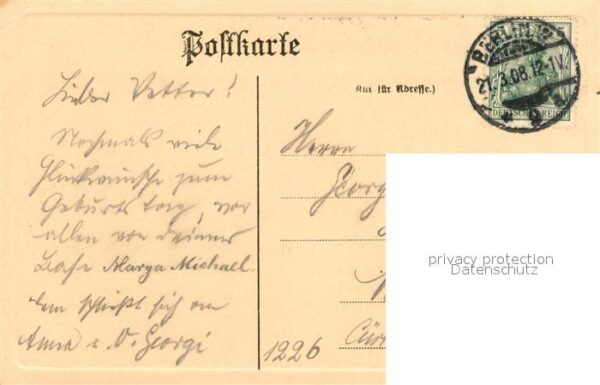 Postkarte
BERLIN W
21.3.08.12-1V.
DEUTSCHES REICH
Nur für Adresse.)
Lieber Vetter!
Nochmals viele
Glückwünsche zum
Geburtstag, vor
allen von Deiner
Base Marga Michael.
Dem schließt sich an
Anna u. O. Georgi
Herrn
Georg
1226
privacy protection
Datenschutz